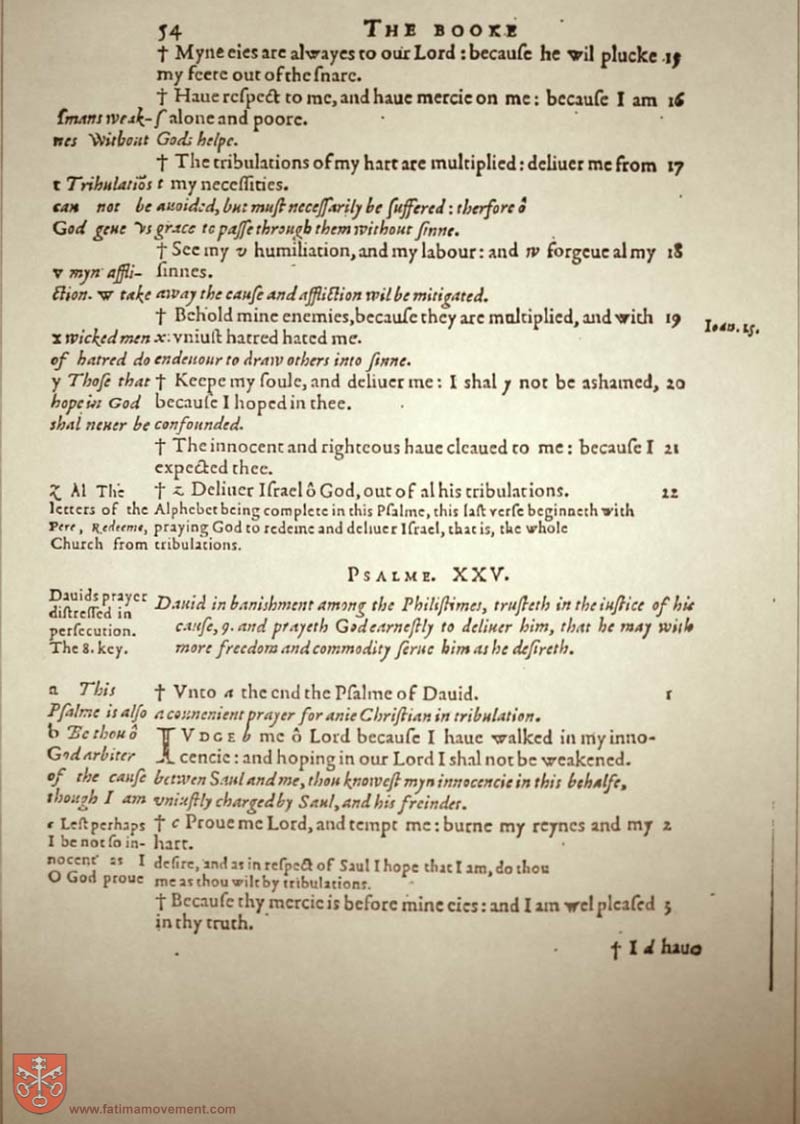 54 THE BOOKE
† Myne eies are alwayes to our Lord : becauſe he wil plucke 15
my feete out of the ſnare.
† Haue reſpect to me, and haue mercie on me : becauſe I am 16
ſ mans weak- ſ alone and poore.
nes Without Gods helpe.
† The tribulations of my hart are multiplied : deliuer me from 17
t Tribulatiõs t my neceſſities.
can not be auoided, but muſt neceſſarily be ſuffered : therfore ô
God geue vs grace to paſſe through them without ſinne.
† See my v humiliation, and my labour : and w forgeue al my 18
v myn affli- ſinnes.
ction. w take away the cauſe and affliction wil be mitigated.
† Behold mine enemies, becauſe they are multiplied, and with 19 Ioan. 15.
x wicked men x : vniuſt hatred hated me.
of hatred do endeuour to draw others into ſinne.
y Thoſe that † Keepe my ſoule, and deliuer me : I shal y not be ashamed, 20
hope in God becauſe I hoped in thee.
shal neuer be confounded.
† The innocent and righteous haue cleaued to me : becauſe I 21
expected thee.
z Al The † z Deliuer Iſrael ô God, out of al his tribulations. 22
letters of the Alphebet being complete in this Pſalme, this laſt verſe beginneth with
Pere, Redeeme, praying God to redeme and deliuer Iſrael, that is, the whole
Church from tribulations.
PSALME. XXV.
Dauids prayer diſtreſſed in perſecution. The 8. key.
Dauid in banishment among the Philiſtimes, truſteth in the iuſtice of his
cauſe, 9. and prayeth God earneſtly to deliuer him, that he may with
more freedom and commodity ſerue him as he deſireth.
a This † Vnto a the end the Pſalme of Dauid. 1
Pſalme is alſo a conuenient prayer for anie Chriſtian in tribulation.
b Be thou ô IVDGE b me ô Lord becauſe I haue walked in my inno-
God arbiter cencie : and hoping in our Lord I shal not be weakened.
of the cauſe betwen Saul and me, thou knoweſt myn innocencie in this behalfe,
though I am vniuſtly charged by Saul, and his freindes.
c Leſt perhaps † c Proue me Lord, and tempt me : burne my reynes and my 2
I be not ſo in- hart.
nocent as I deſire, and as in reſpect of Saul I hope that I am, do thou
O God proue me as thou wilt by tribulations.
† Becauſe thy mercie is before mine eies : and I am wel pleaſed 3
in thy truth.
† I d haue
www.fatimamovement.com